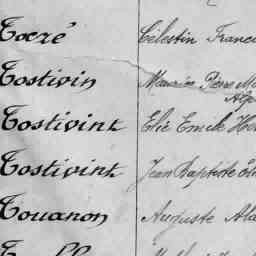 Tocré Célestin Franc
Tostivin Maurice Pierre M
Tostivint Elie Emile
Tostivint Jean Baptiste
Touanon Auguste Ala